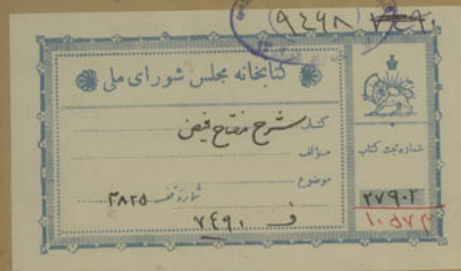 (۹۴۶۸)
کتابخانه مجلس شورای ملی
کتاب شرح مفتاح فیض
مؤلف
موضوع
شمارهٔ قفسه ۳۸۲۵
ف ۷۴۹۰
شماره ثبت کتاب
۲۷۹۰۲
۱۰۵۷۲